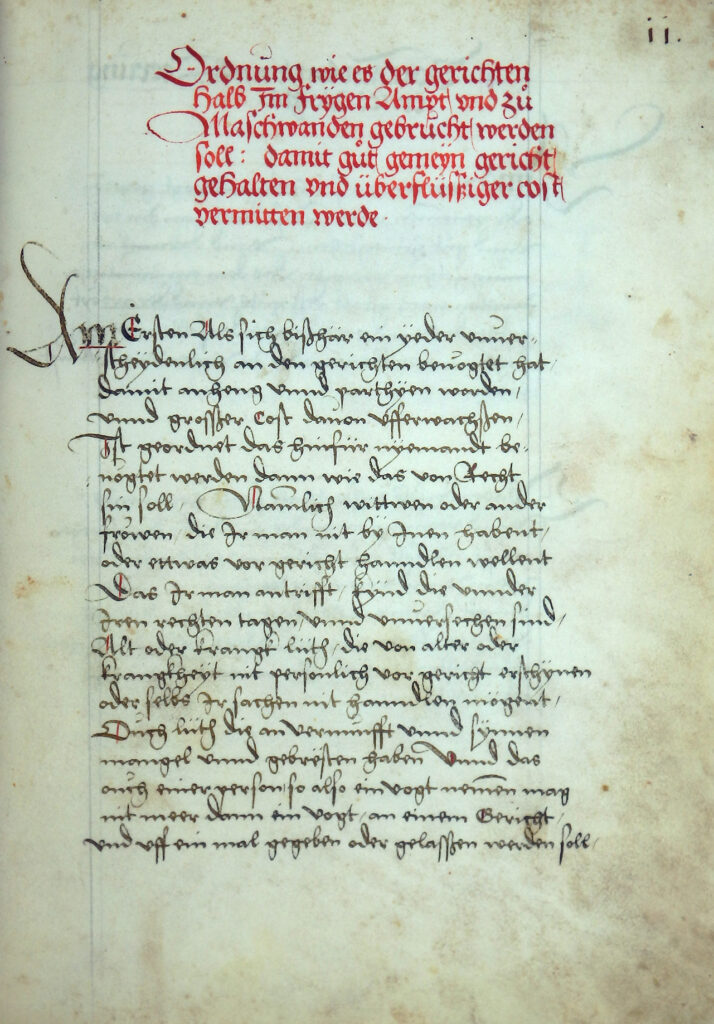 ii.
Ordnung wie es der gerichten
halb Im frygen Ampt vnd zů
Maschwanden gebrucht werden
soll: damit gůt gemeyn gericht
gehalten vnd überflüssiger cost
vermitten werde.
Am Ersten Als sich bißhär ein yeder vnuer-
scheydenlich an den gerichten beuogtet hat,
damit anheng vnnd parthyen worden,
vnnd grosser Cost dauon vfferwachßen,
Ist geordnet das hinfür nyemandt be-
uogtet werden dann wie das von Recht
sin soll. Namlich wittwen oder ander
frowen, die Ir man nit by Inen habent,
oder ettwas vor gericht hanndlen wellent
Das Ir man antrifft, kynd die vnnder
Iren rechten tagen, vnnd vnuersechen sind,
Alt oder krangk lüth, die von alter oder
krangkheyt nit personlich vor gericht erschynen
oder selbs Ir sachen nit hanndlen mögent,
Ouch lüth die an vernunfft vnnd synnen
mangel vnnd gebresten haben Vnnd das
ouch einer person, so also ein vogt nemmen mag
nit meer dann ein vogt, an einem Gericht,
vnd vff ein mal gegeben oder gelassen werden soll,